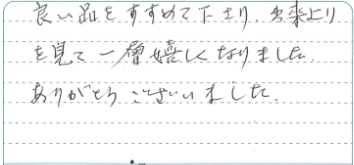 良い品をすすめて下さり、出来上り
を見て一層嬉しくなりました。
ありがとうございました。